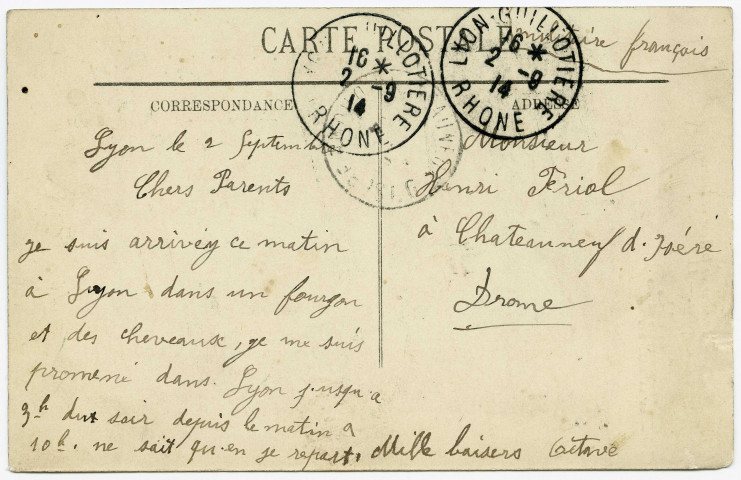 CARTE POSTALE
militaire français
LYON-GUILLOTIERE
16 *
2 -9
14
RHONE
LYON-GUILLOTIERE
16 *
2 -9
14
RHONE
CORRESPONDANCE
ADRESSE
Lyon le 2 Septembre
Chers Parents
je suis arrivéy ce matin
à Lyon dans un fourgon
et des cheveaux, je me suis
promené dans Lyon jusqu'a
9h du soir depuis le matin a
10h. ne sait qu-en je repart, Mille baisers Octave
Monsieur
Henri Friol
à Chateauneuf d. Isére
Drome